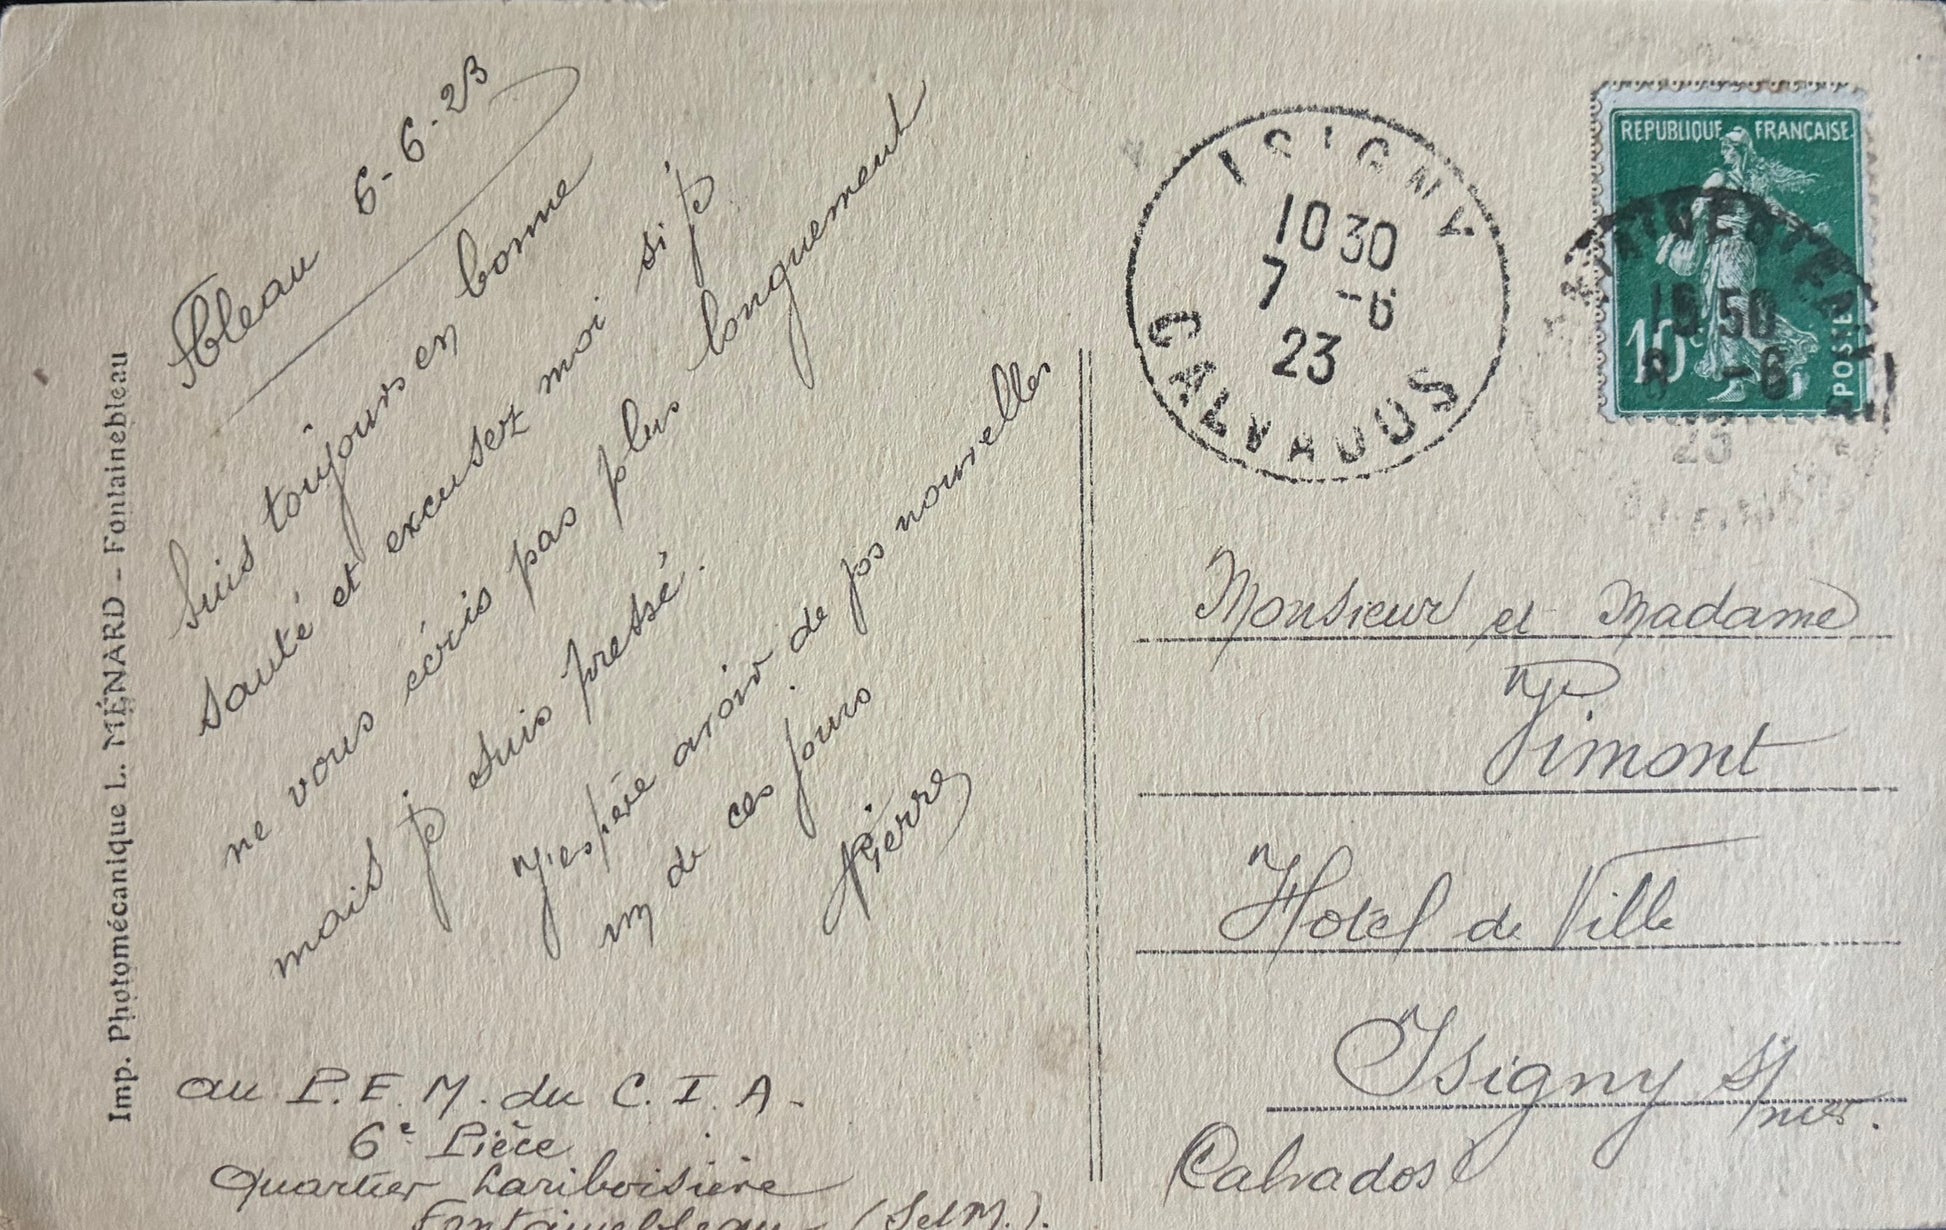 Imp. Photomécanique L. MÉNARD - Fontainebleau
Fbleau 6-6-23
Suis toujours en bonne
santé et excusez moi si je
ne vous écris pas plus longuement
mais je suis pressé.
J'espère avoir de vos nouvelles
un de ces jours
Pierre
au P.E.M. du C.I.A.
6e Pièce
Quartier Lariboisière
Fontainebleau (SetM.).
ISIGNY
10 30
7 -6
23
CALVADOS
REPUBLIQUE FRANÇAISE
10c
POSTES
50
8 -6
23
Monsieur et Madame
Pimont
Hotel de Ville
Isigny s/mer.
Calvados